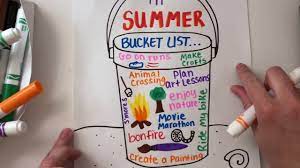 SUMMER
BUCKET LIST...
Go on runs
Make Crafts
Animal Crossing
Plan art Lessons
S'mores
enjoy nature
Ride my bike
Movie Marathon
bonfire
Create a Painting